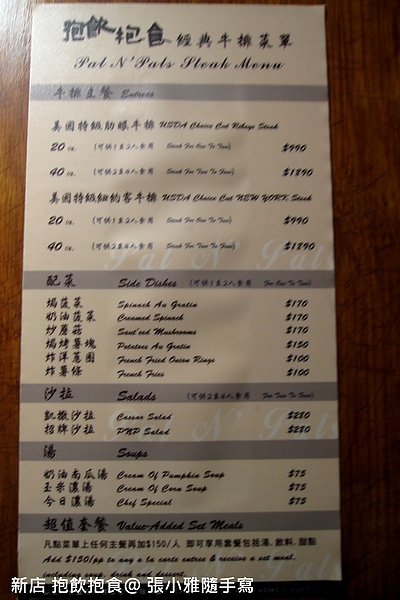 狍飲狍食 經典牛排菜單
Pal N' Pals Steak Menu
牛排主餐 Entrees
美國特級肋眼牛排 USDA Choice Cut Ribeye Steak
20 oz. (可供1至2人食用 Steak For One To Two) $990
40 oz. (可供2至4人食用 Steak For Two To Four) $1890
美國特級紐約客牛排 USDA Choice Cut NEW YORK Steak
20 oz. (可供1至2人食用 Steak For One To Two) $990
40 oz. (可供2至4人食用 Steak For Two To Four) $1890
Pal N' Pals
配菜 Side Dishes (可供1至2人食用 For One To Two)
焗菠菜 Spinach Au Gratin $170
奶油菠菜 Creamed Spinach $170
炒蘑菇 Saut'eed Mushrooms $170
焗烤薯塊 Potatoes Au Gratin $150
炸洋蔥圈 French Fried Onion Rings $100
炸薯條 French Fries $100
沙拉 Salads (可供2至4人食用 For Two To Four)
凱撒沙拉 Caesar Salad $280
招牌沙拉 PNP Salad $280
湯 Soups
奶油南瓜湯 Cream Of Pumpkin Soup $75
玉米濃湯 Cream Of Corn Soup $75
今日濃湯 Chef Special $75
超值套餐 Value-Added Set Meals
凡點菜單上任何主餐再加$150/人 即可享用套餐包括湯, 飲料, 甜點
Add $150/pp to any a la carte entree & receive a set meal,
including soup, drink and dessert
新店 抱飲抱食@ 張小雅隨手寫